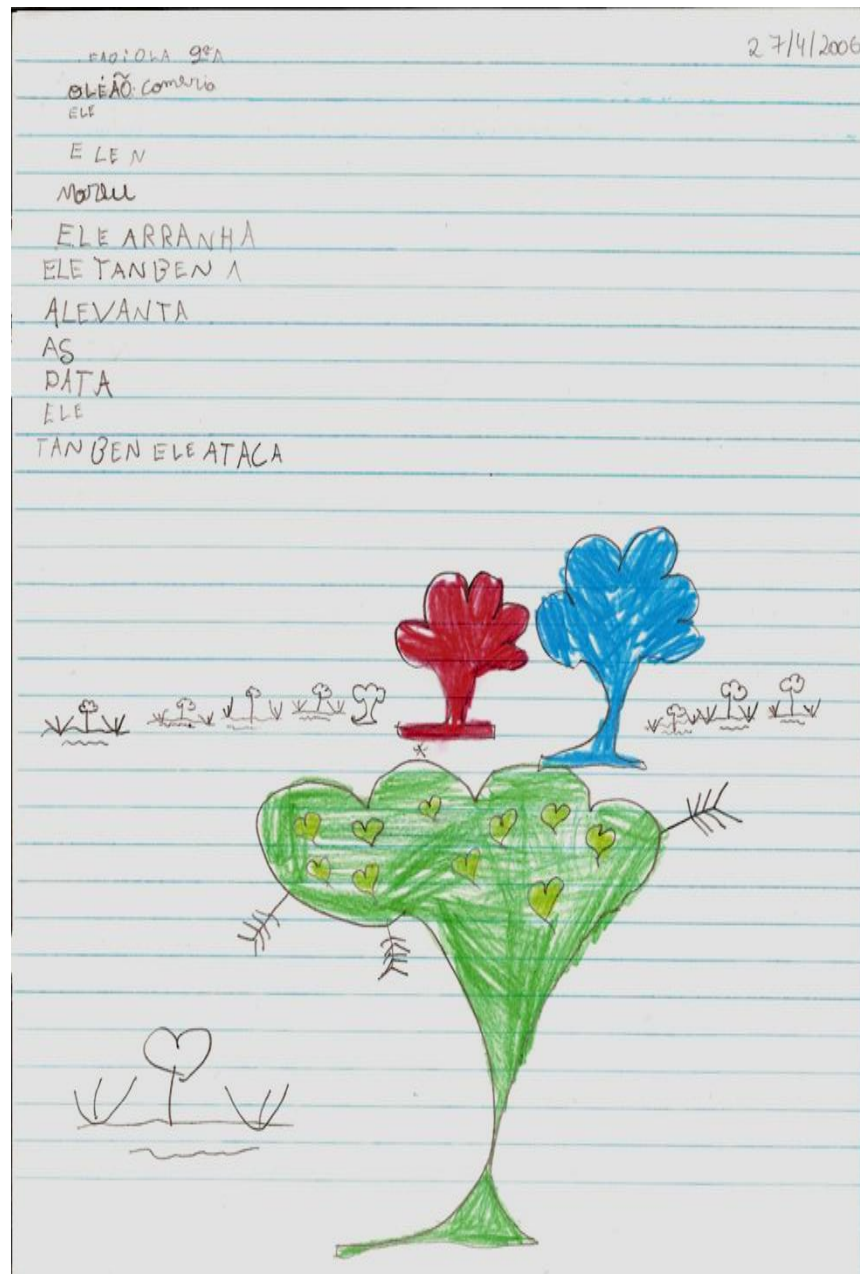 FABIOLA 9ºA 27/4/2006
OLEÃO: Comerio
ELE
ELE N
Mordeu
ELE ARRANHA
ELE TANBEN A
ALEVANTA
AS
PATA
ELE
TANBEN ELE ATACA